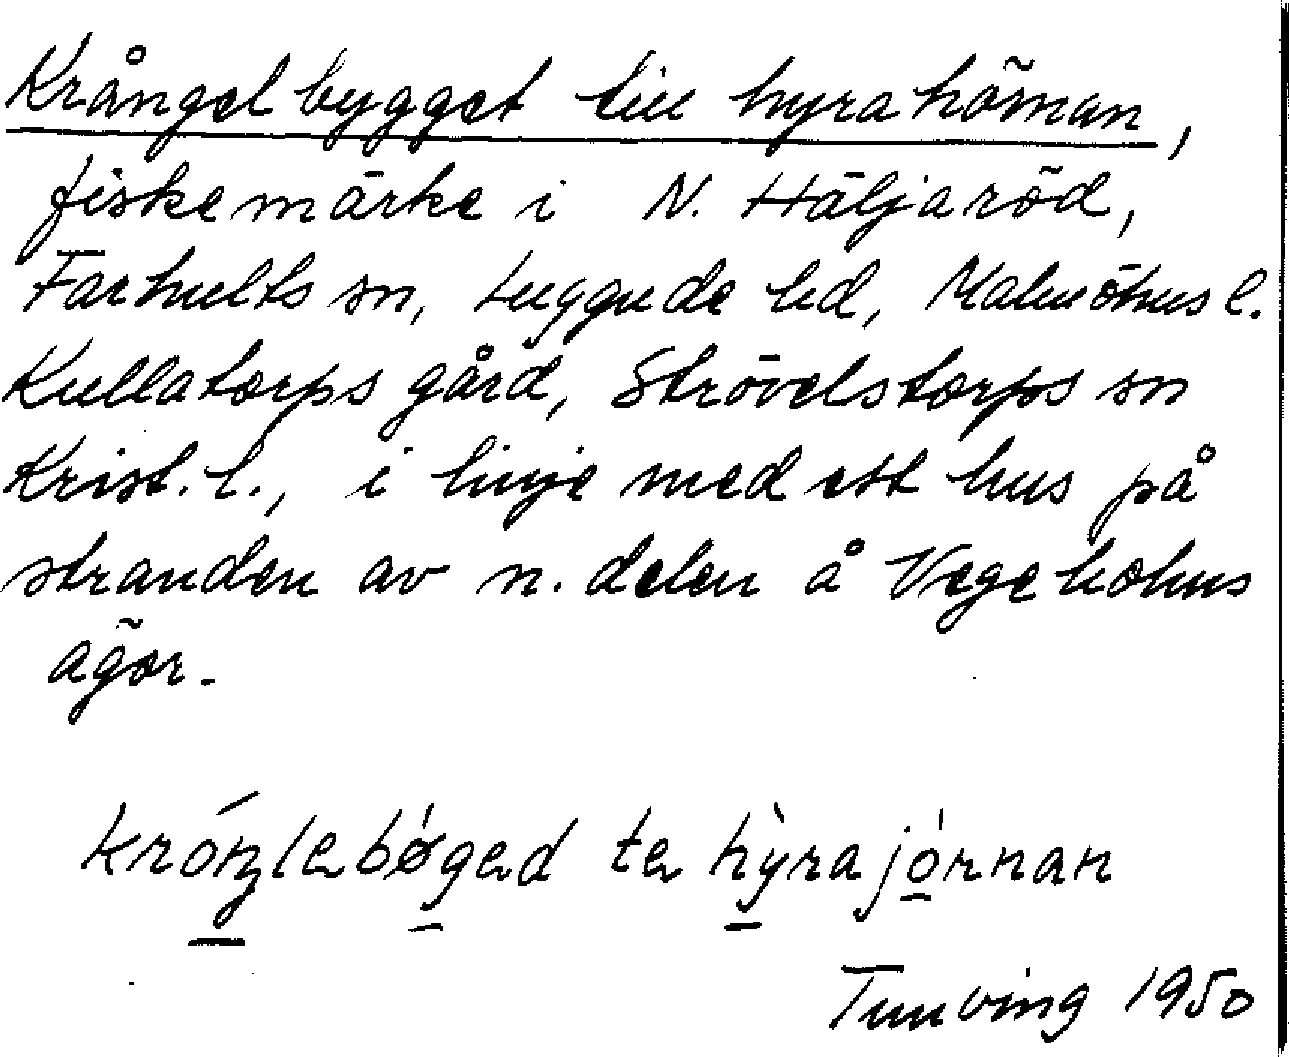 Krångelbygget till hyrahörnan,
fiskemärke i N. Häljaröd,
Farhults sn, Luggude hd, Malmöhus l.
Kullatorps gård, Strövelstorps sn
Krist. l., i linje med ett hus på
stranden av n. delen å Vegeholms
ägor.
króŋləbǿgəd tə hỳrajórnan
Tunving 1950